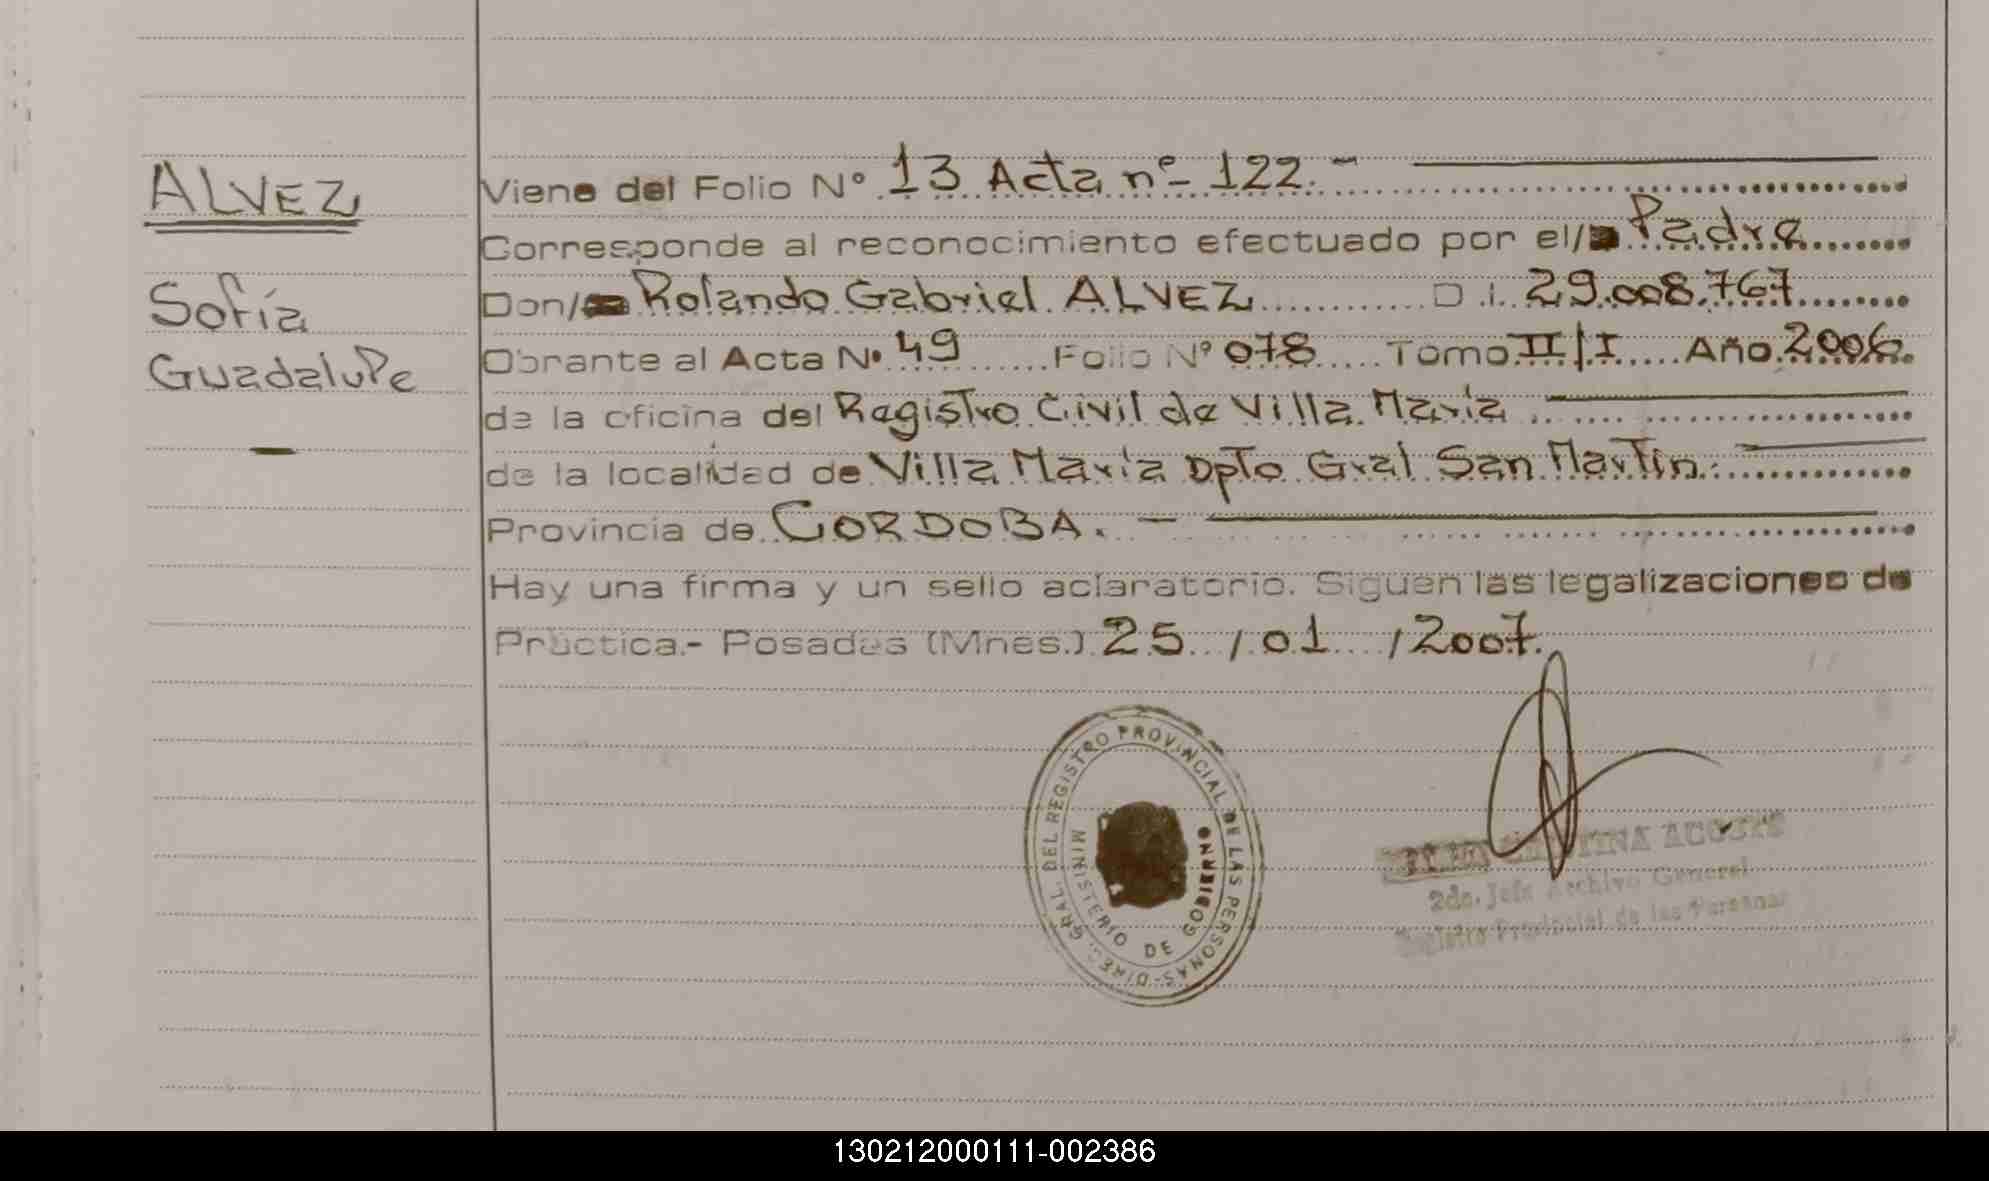 ALVEZ
Sofía
Guadalupe
Viene del Folio Nº 13 Acta nº 122.-
Corresponde al reconocimiento efectuado por el/ Padre
Don/ Rolando Gabriel ALVEZ D.I. 29.008.767
Obrante al Acta Nº 49 Folio Nº 078 Tomo II/I Año 2006.
de la oficina del Registro Civil de Villa María
de la localidad de Villa María Dpto Gral San Martín.
Provincia de CORDOBA. -
Hay una firma y un sello aclaratorio. Siguen las legalizaciones de
Práctica.- Posadas (Mnes.) 25 / 01 / 2007.
DIREC. GRAL. DEL REGISTRO PROVINCIAL DE LAS PERSONAS-
MINISTERIO DE GOBIERNO
2do. Jefe Archivo General
Registro Provincial de las Personas
130212000111-002386